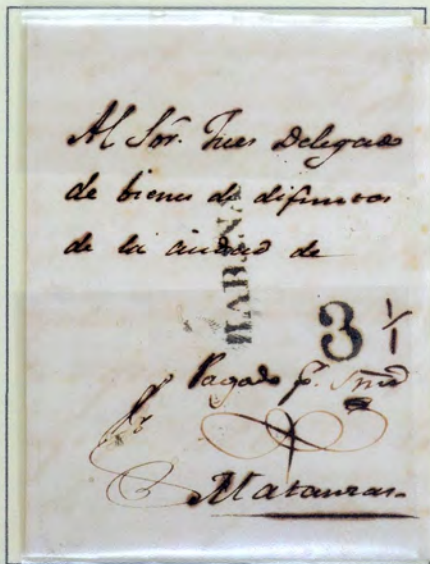 Al Sōr. Juez Delegado
de bienes de difuntos
de la ciudad de
HABANA
3 1/1
Pagado p.
Matanzas.